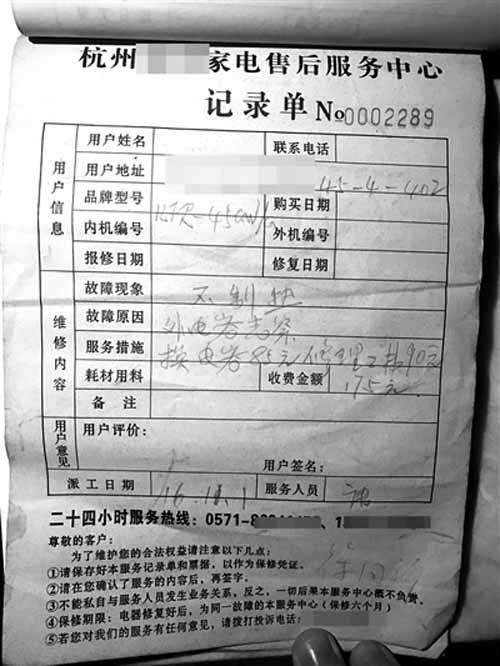 杭州 家电售后服务中心
记录单 No 0002289
用户信息
用户姓名 联系电话
用户地址 45-4-402
品牌型号 购买日期
内机编号 外机编号
报修日期 修复日期
维修内容
故障现象 不制热
故障原因
服务措施 换电容85元修理工 90元
耗材用料 收费金额 175元
备 注
用户意见
用户评价：
用户签名：
派工日期 16.11.1 服务人员
二十四小时服务热线：0571-8
尊敬的客户：
为了维护您的合法权益请注意以下几点：
①请保存好本服务记录单和票据，以作为保修凭证。
②请在您确认了服务的内容后，再签字。
③不能私自与服务人员发生业务关系，反之，一切后果本服务中心概不负责。
④保修期限：电器修复好后，为同一故障的本服务中心（保修六个月）
⑤若您对我们的服务有任何意见，请拨打投诉电话：